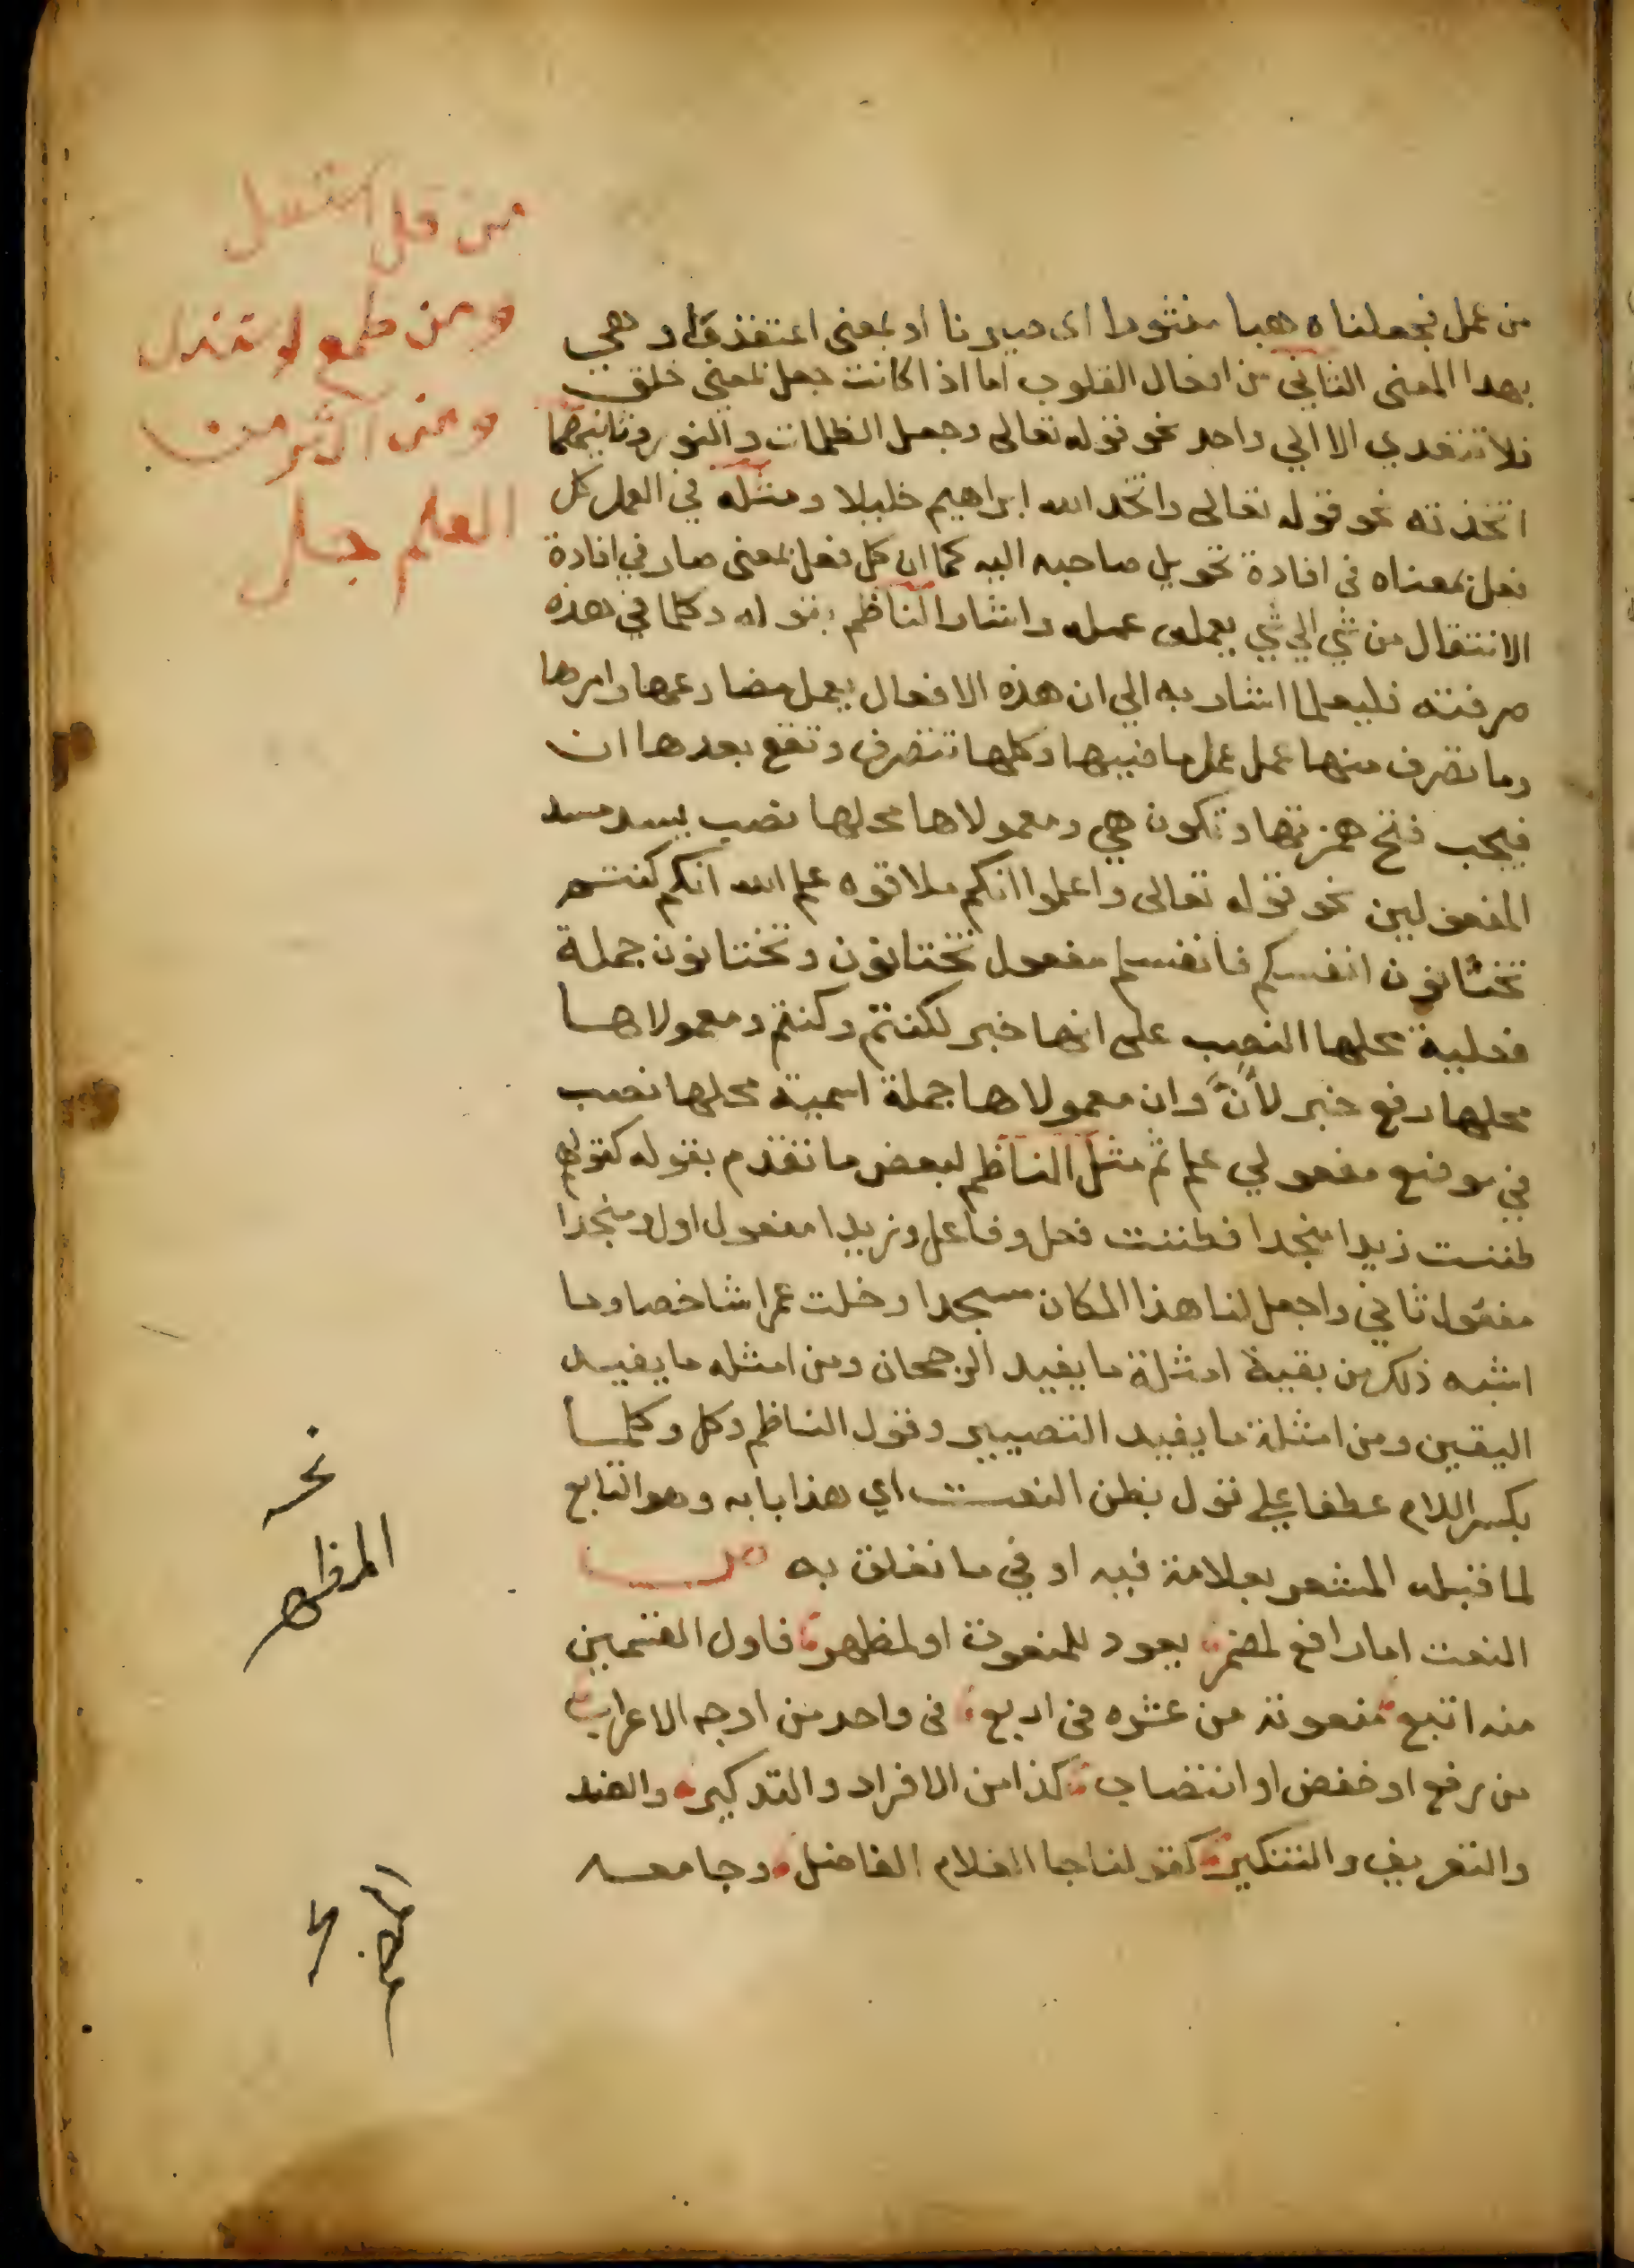 من عمل فجعلناه هبا منثورا اى صيرنا او بمعنى اعتقد وهي
بهدا المعنى الثاني من افعال القلوب اما اذا كانت جعل بمعنى خلق
فلا تتعدي الا الي واحد نحو قوله تعالى وجعل الظلمات والنور وثانيهما
اتخذته نحو قوله تعالى واتخد الله ابراهيم خليلا ومثله في العمل كل
فعل بمعناه فى افادة تحويل صاحبه اليه كما ان كل فعل بمعنى صار في افادة
الانتقال من شي الي شي يعمل عمله واشار الناظم بقوله وكلما في هذه
صرفته فليعلما اشار به الي ان هذه الافعال يعمل مضارعها وامرها
وما تصرف منها عمل عمل ماضيها وكلها تتصرف وتقع بعدها ان
فيجب فتح همزتها وتكون هي ومعمولاها محلها نصب يسد مسد
المفعولين نحو قوله تعالى واعلموا انكم ملاقوه علم الله انكم كنتم
تختانون انفسكم فانفسكم مفعول تختانون وتختانون جملة
فعلية محلها النصب على انها خبر لكنتم وكنتم ومعمولاها
محلها رفع خبر لأنَّ وان معمولاها جملة اسمية محلها نصب
في موضع مفعولي علم ثم مثل الناظم لبعض ما تقدم بقوله كقولهم
ظننت زيدا منجدا فظننت فعل وفاعل وزيدا مفعول اول ومنجدا
مفعول ثاني واجعل لنا هذا المكان مسجدا وخلت عمرا شاخصا وما
اشبه ذلك من بقية امثلة ما يفيد الرجحان ومن امثله ما يفيد
اليقين ومن امثلة ما يفيد التصيير وقول الناظم وكل وكلما
بكسر اللام عطفا علي قول بظن النعت اي هذا بابه وهو التابع
لما قبله المشعر بعلامة فيه او في ما تعلق به ص
النعت اما رافع لمضمر يعود للمنعوت او لمظهر فاول القسمين
منه اتبع منعوته من عشره فى اربع فى واحد من اوجه الاعراب
من رفع او خفض او انتصاب كذا من الافراد والتدكير والضد
والتعريف والتنكير كقولنا جا الغلام الفاضل وجا معه
من قل استقل
ومن طمع
ومن اكثر من
العلم جل
نحو
المظهر